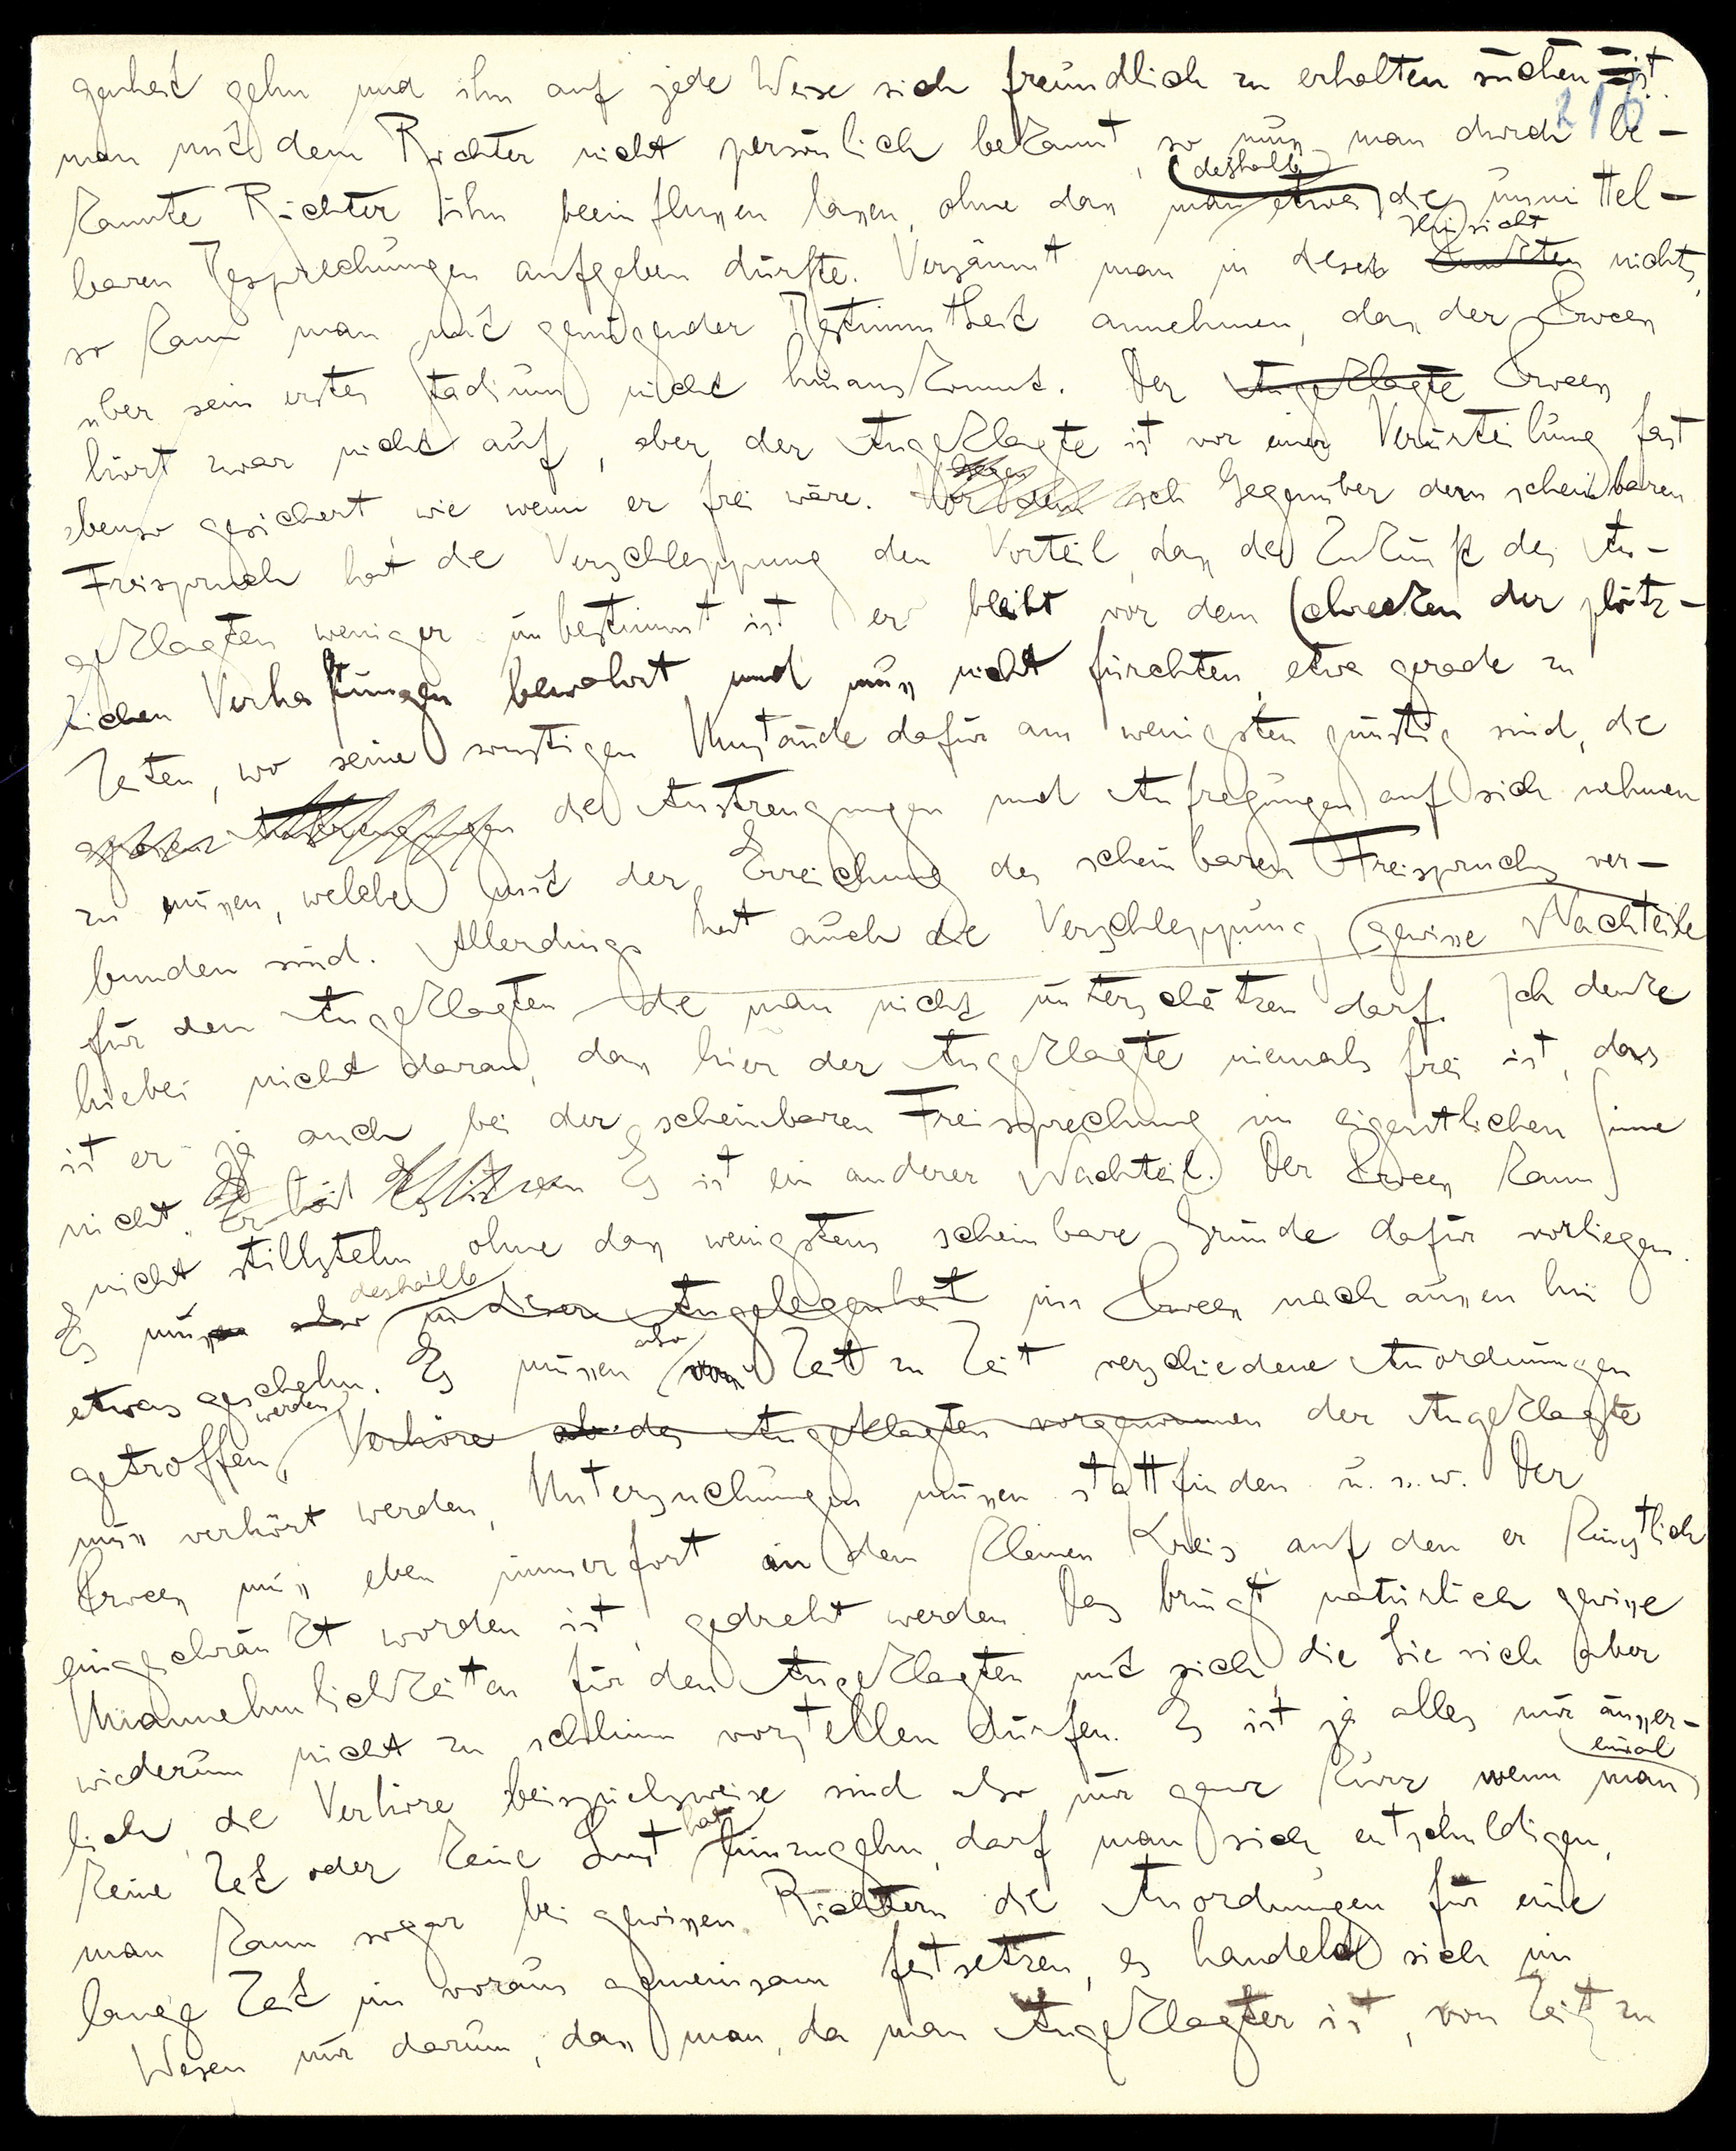 genheit gehn und ihn auf jede Weise sich freundlich zu erhalten suchen ist
216
man mit dem Richter nicht persönlich bekannt, so muss man durch be-
deshalb
kannte Richter ihn beeinflussen lassen, ohne dass man etwa die unmittel-
Hinsicht
baren Besprechungen aufgeben dürfte. Versäumt man in dieser nichts,
so kann man mit genügender Bestimmtheit annehmen, dass der Process
über sein erstes Stadium nicht hinauskommt. Der Angeklagte Process
hört zwar nicht auf, aber der Angeklagte ist vor einer Verurteilung fast
ebenso gesichert wie wenn er frei wäre. Gegenüber dem scheinbaren
Freispruch hat die Verschleppung den Vorteil, dass die Zukunft des An-
geklagten weniger unbestimmt ist er bleibt vor dem Schrecken der plötz-
lichen Verhaftungen bewahrt und muss nicht fürchten, etwa gerade zu
Zeiten, wo seine sonstigen Umstände dafür am wenigsten günstig sind, die
grossen Anstrengungen die Anstrengungen und Aufregungen auf sich nehmen
zu müssen, welche mit der Erreichung des scheinbaren Freispruchs ver-
bunden sind. Allerdings hat auch die Verschleppung gewisse Nachteile
für den Angeklagten die man nicht unterschätzen darf. Ich denke
hiebei nicht daran, dass hier der Angeklagte niemals frei ist, das
ist er ja auch bei der scheinbaren Freisprechung im eigentlichen Sinne
nicht. Es ist ein anderer Nachteil. Der Process kann
nicht stillstehn ohne dass wenigstens scheinbare Gründe dafür vorliegen.
deshalb
Es muss also in dieser Angelegenheit im Process nach aussen hin
also
etwas geschehn. Es müssen von Zeit zu Zeit verschiedene Anordnungen
werden
getroffen, Verhöre des Angeklagten vorgenommen der Angeklagte
muss verhört werden, Untersuchungen müssen stattfinden u. s. w. Der
Process muss eben immerfort in dem kleinen Kreis, auf den er künstlich
eingeschränkt worden ist, gedreht werden. Das bringt natürlich gewisse
Unannehmlichkeiten für den Angeklagten mit sich, die Sie sich aber
wiederum nicht zu schlimm vorstellen dürfen. Es ist ja alles nur äusser-
einmal
lich, die Verhöre beispielsweise sind also nur ganz kurz, wenn man
hat
keine Zeit oder keine Lust hinzugehn, darf man sich entschuldigen,
man kann sogar bei gewissen Richtern die Anordnungen für eine
lange Zeit im voraus gemeinsam festsetzen, es handelt sich im
Wesen nur darum, dass man, da man Angeklagter ist, von Zeit zu